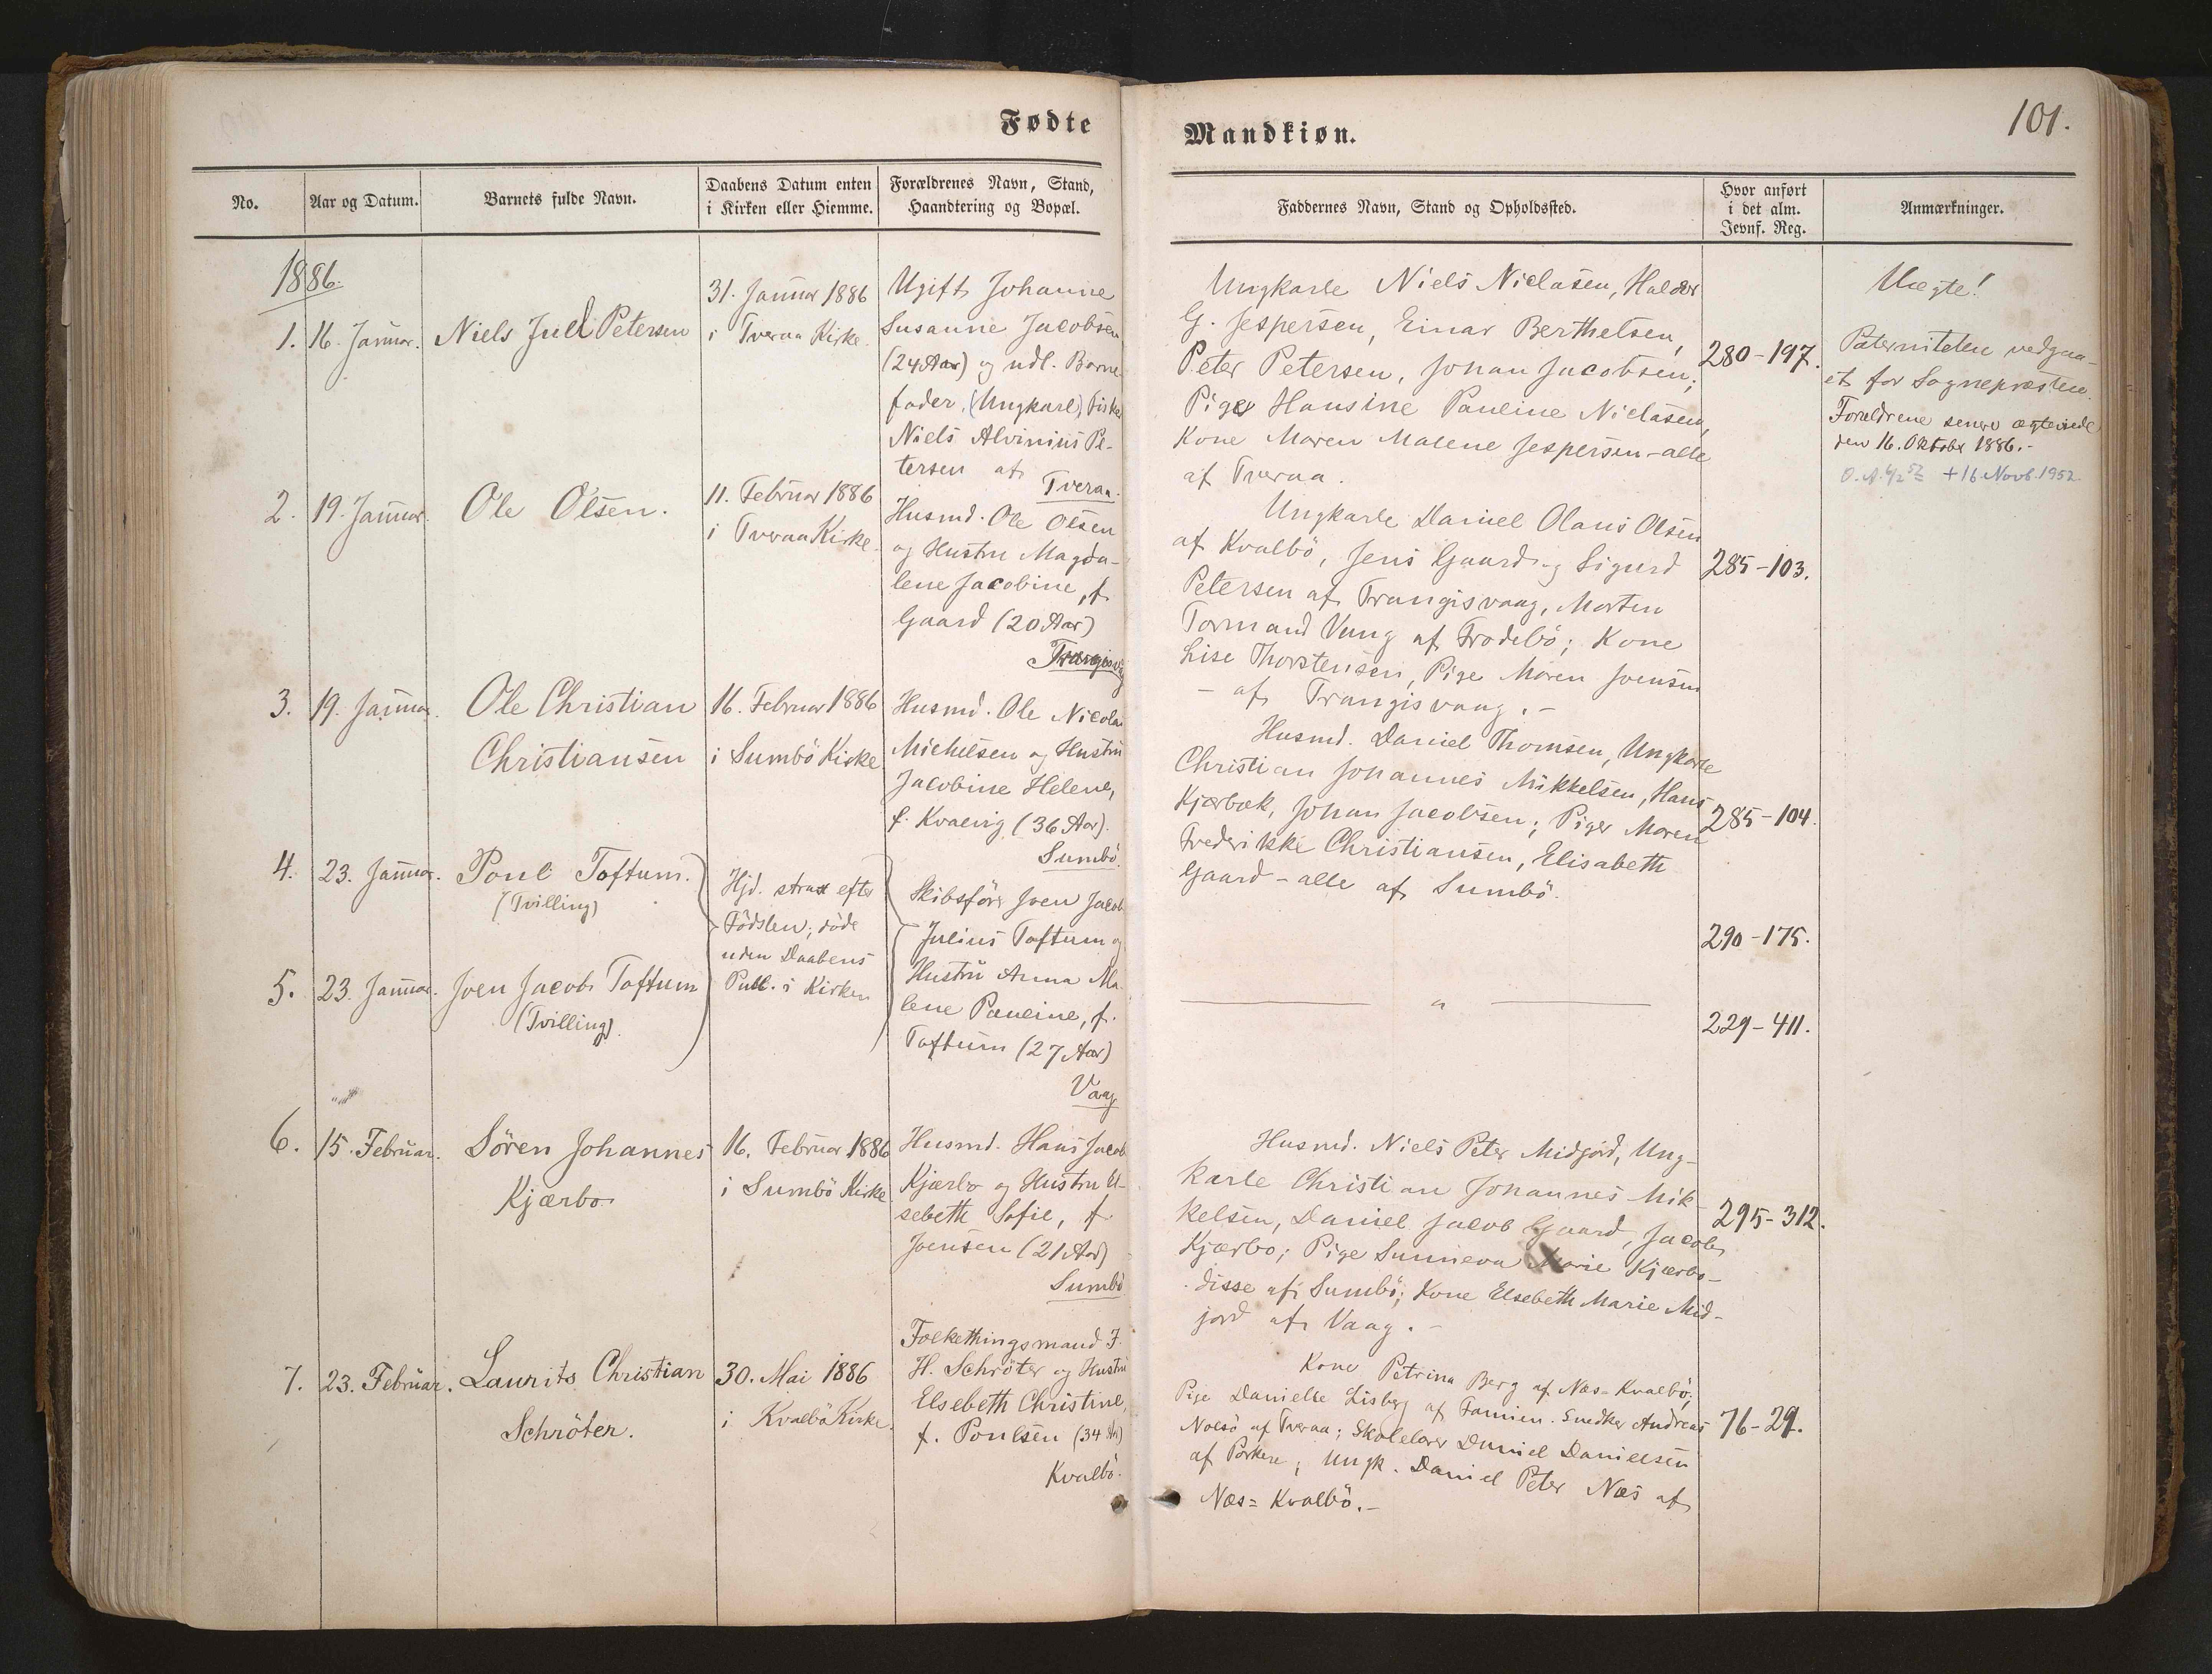 Fødte
Mandkiøn.
101.
No.
Aar og Datum.
Barnets fulde Navn.
Daabens Datum enten
i Kirken eller Hiemme.
Forældrenes Navn, Stand,
Haandtering og Bopæl.
Faddernes Navn, Stand og Opholdssted.
Hvor anført
i det alm.
Jevnf. Reg.
Anmærkninger.
1886.
1. 16. Januar.
Niels Juel Petersen
31. Januar 1886
i Tveraa Kirke.
Ugift Johanne
Susanne Jacobsen
(24 Aar) og udl. Barne
fader, (Ungkarl) Fisker
Niels Alvinius Pe-
tersen af
Tveraa.
Ungkarle Niels Niclasen, Haldor
G. Jespersen, Einar Berthelsen,
Peter Petersen, Johan Jacobsen;
Pige Hansine Pauline Niclasen,
Kone Maren Malene Jespersen - alle
af Tveraa.
280-197.
Uægte!
Paterniteten vedgaa-
et for Sognepræsten.
Forældrene senere ægteviede
den 16. Oktober 1886.-
+ 16 Novb. 1952.
2. 19. Januar.
Ole Olsen.
11. Februar 1886
i Tveraa Kirke.
Husmd. Ole Olsen
og Hustru Magda-
lene Jacobine, f.
Gaard (20 Aar)
Trangisvg
Ungkarle Daniel Olaus Olsen
af Kvalbö, Jens Gaard og Sigurd
Petersen af Trangisvaag, Morten
Tormand Vang af Frodebö; Kone
Lise Thorstensen, Pige Maren Joensen
- af Trangisvaag.-
285-103.
3. 19. Januar.
Ole Christian
Christiansen
16. Februar 1886
i Sumbö Kirke
Husmd. Ole Nicolai
Michelsen og Hustru
Jacobine Helene,
f. Kvalvig (36 Aar).
Sumbö.
Husmd. Daniel Thomsen, Ungkarle
Christian Johannes Mikkelsen, Hans
Kjærbæk, Johan Jacobsen; Piger Maren
Frederikke Christiansen, Elisabeth
Gaard - alle af Sumbö.
285-104.
4. 23. Januar.
Poul Toftum.
(Tvilling)
Hjd. strax efter
Födslen; döde
uden Daabens
Publ. i Kirken
Skibsförer Joen Jacob
Julius Toftum og
Hustru Anna Ma
lene Pauline, f.
Toftum (27 Aar)
Vaag
290-175.
5. 23. Januar.
Joen Jacob Toftum
(Tvilling).
"
229-411.
6. 15. Februar.
Sören Johannes
Kjærbo
16. Februar 1886
i Sumbö Kirke
Husmd. Hans Jacob
Kjærbo og Hustru El-
sebeth Sofie, f.
Joensen (21 Aar)
Sumbö
Husmd. Niels Peter Midjord, Ung-
karle Christian Johannes Mik-
kelsen, Daniel Jacob Gaard, Jacob
Kjærbo; Pige Sunneva Marie Kjærbo-
disse af Sumbö; Kone Elsebeth Marie Mid-
jord af Vaag.-
295-312.
7. 23. Februar.
Laurits Christian
Schröter.
30. Mai 1886
i Kvalbö Kirke.
Folkethingsmand F.
H. Schröter og Hustru
Elsebeth Christine,
f. Poulsen (34 Aar)
Kvalbö.
Kone Petrina Berg af Næs-Kvalbö;
Pige Danielle Lisberg af Famien. Snedker Andreas
Nolsö af Tveraa; Skolelærer Daniel Danielsen
af Porkere; Ungk. Daniel Peter Næs af
Næs-Kvalbö.-
76-29.